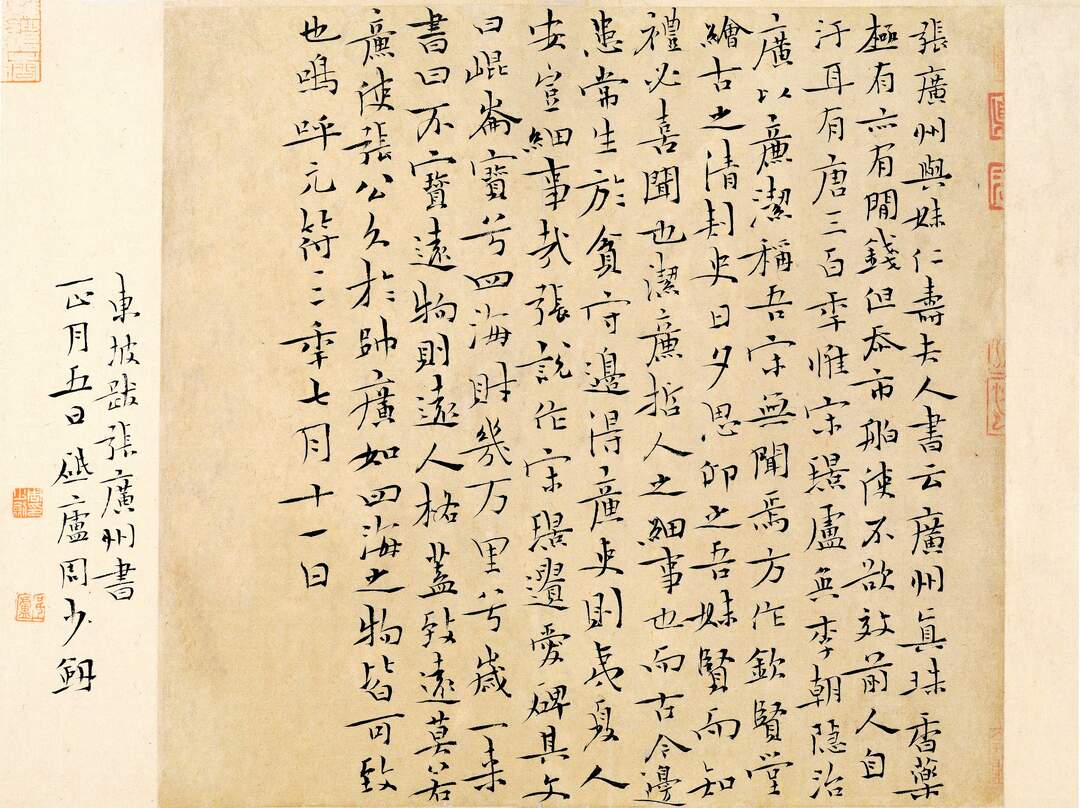 張廣州與妹仁壽夫人書云廣州真珠香藥
極有亦有閒錢但忝市舶使不欲效前人自
汙耳有唐三百年惟宋璟盧奐李朝隱治
廣以廉潔稱吾宋無聞焉方作欽賢堂
繪古之清刺史日夕思仰之吾妹賢而知
禮必喜聞也潔廉哲人之細事也而古今邊
患常生於貪守邊得廉吏則夷夏人
安豈細事哉張說作宋璟遺愛碑其文
曰崐崘寶兮四海財幾万里兮歲一來
書曰不寶遠物則遠人格蓋致遠莫若
廉使張公久於帥廣如四海之物皆可致
也嗚呼元符三年七月十一日
東坡跋張廣州書
正月五日砥廬周少舸